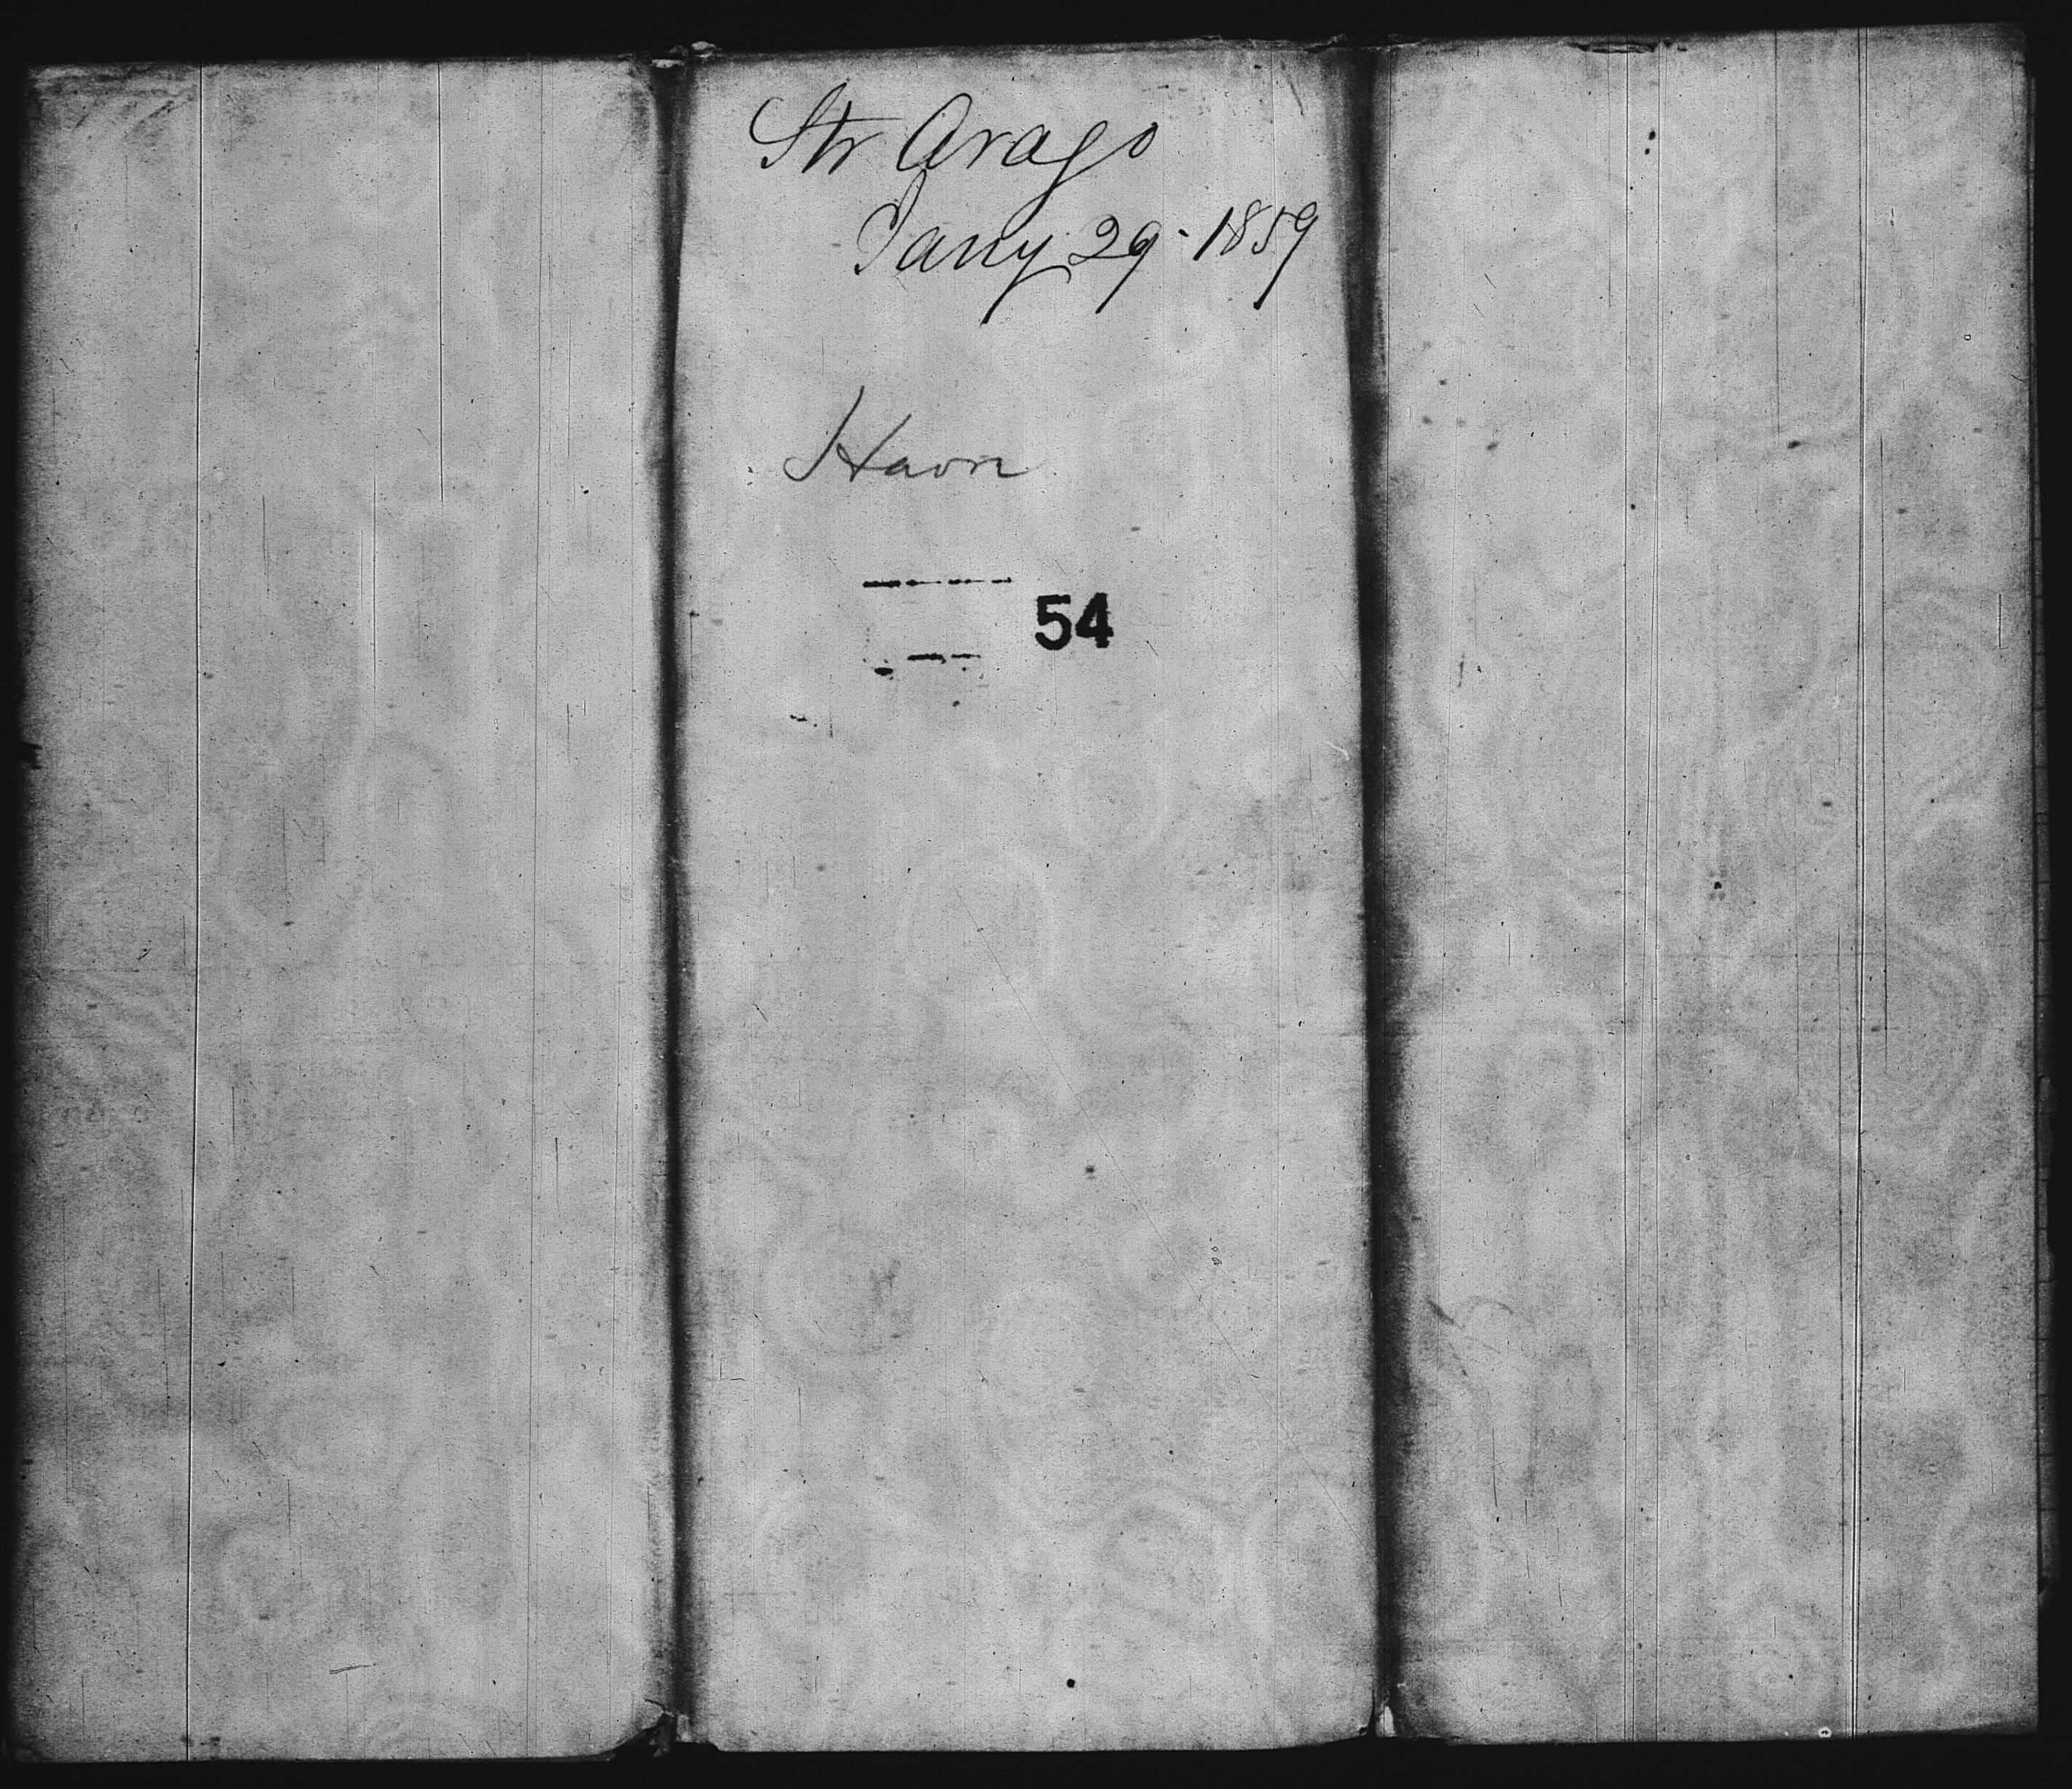 Str Arago
Jany 29 - 1859
Havre
54